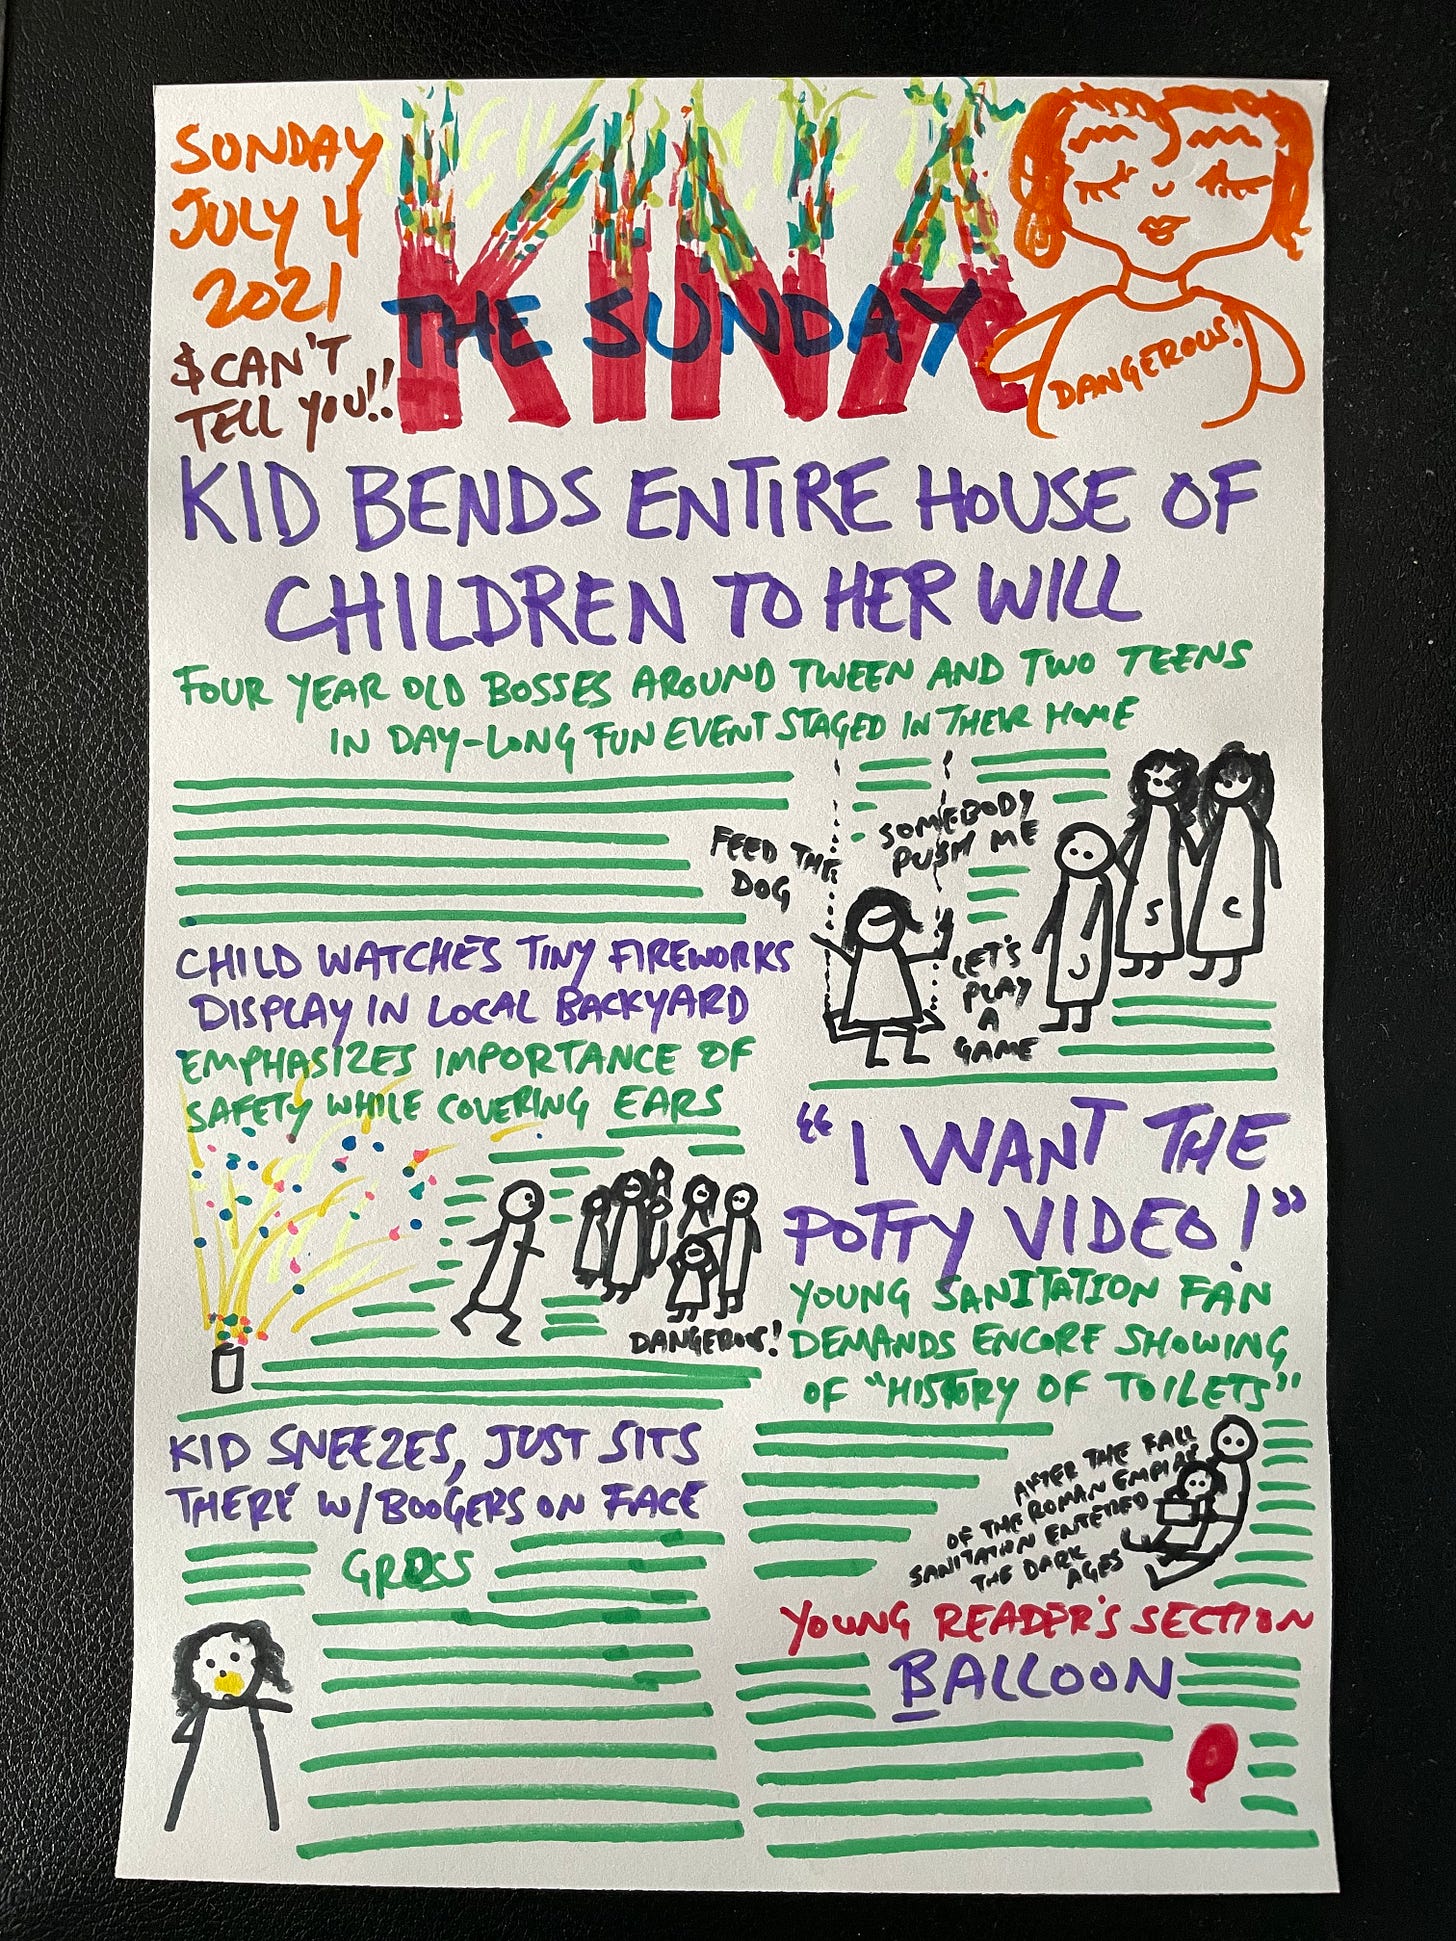 SUNDAY
JULY 4
2021
$CAN'T
TELL YOU!!
KINA
THE SUNDAY
DANGEROUS!
KID BENDS ENTIRE HOUSE OF
CHILDREN TO HER WILL
FOUR YEAR OLD BOSSES AROUND TWEEN AND TWO TEENS
IN DAY-LONG FUN EVENT STAGED IN THEIR HOME
FEED THE
DOG
SOMEBODY
PUSH ME
LET'S
PLAY
A
GAME
J
S
C
CHILD WATCHES TINY FIREWORKS
DISPLAY IN LOCAL BACKYARD
EMPHASIZES IMPORTANCE OF
SAFETY WHILE COVERING EARS
DANGEROUS!
"I WANT THE
POTTY VIDEO!"
YOUNG SANITATION FAN
DEMANDS ENCORE SHOWING
OF "HISTORY OF TOILETS"
AFTER THE FALL
OF THE ROMAN EMPIRE
SANITATION ENTERED
THE DARK
AGES
KID SNEEZES, JUST SITS
THERE W/BOOGERS ON FACE
GROSS
YOUNG READER'S SECTION
BALLOON